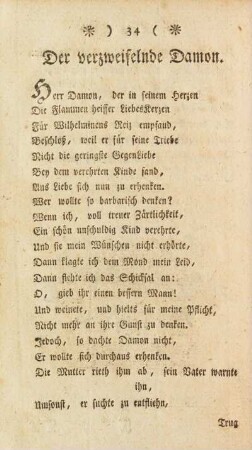 * ) 34 ( *
Der verzweifelnde Damon.
Herr Damon, der in seinem Herzen
Die Flammen heisser LiebesKerzen
Für Wilhelminens Reiz empfand,
Beschloß, weil er für seine Triebe
Nicht die geringste GegenLiebe
Bey dem verehrten Kinde fand,
Aus Liebe sich nun zu erhenken.
Wer wollte so barbarisch denken?
Wenn ich, voll treuer Zärtlichkeit,
Ein schön unschuldig Kind verehrte,
Und sie mein Wünschen nicht erhörte,
Dann klagte ich dem Mond mein Leid,
Dann flehte ich das Schicksal an:
O, gieb ihr einen bessern Mann!
Und weinete, und hielts für meine Pflicht,
Nicht mehr an ihre Gunst zu denken.
Jedoch, so dachte Damon nicht,
Er wollte sich durchaus erhenken.
Die Mutter rieth ihm ab, sein Vater warnte
ihn,
Umsonst, er suchte zu entfliehn,
Trug